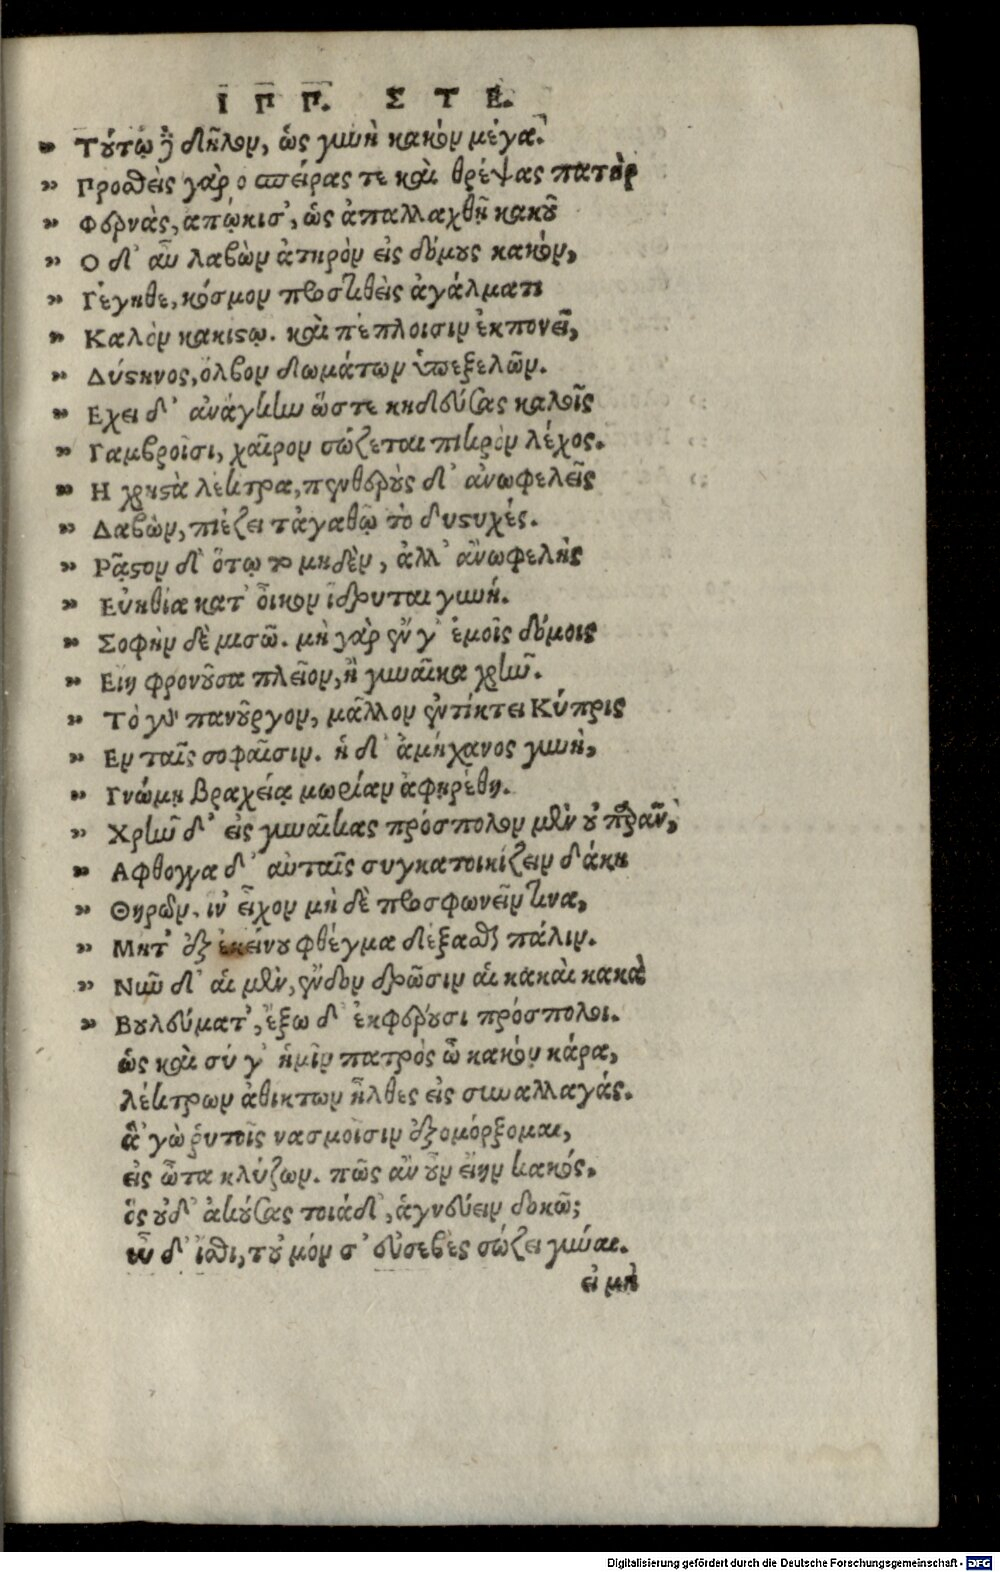 ΙΠΠ. ΣΤΕ.
» Τούτῳ δὲ δῆλον, ὡς γυνὴ κακὸν μέγα.
» Προσθεὶς γὰρ ο σπείρας τε καὶ θρέψας πατὴρ
» Φερνὰς, απῴκισ', ὡς ἀπαλλαχθῇ κακοῦ
» Ο δ' αὖ λαβὼν ἀτηρὸν εἰς δόμους κακὸν,
» Γέγηθε, κόσμον προστιθεὶς ἀγάλματι
» Καλὸν κακίστῳ. καὶ πέπλοισιν ἐκπονεῖ,
» Δύστηνος, ὄλβον δωμάτων ὑπεξελῶν.
» Εχει δ' ἀνάγκην ὥστε κηδεύσας καλοῖς
» Γαμβροῖσι, χαῖρον σώζεται πικρὸν λέχος.
» Η χρηστὰ λέκτρα, πενθεροὺς δ' ἀνωφελεῖς
» Λαβὼν, πιέζει τἀγαθῷ τὸ δυστυχές.
» Ρᾷστον δ' ὅτῳ τὸ μηδὲν, ἀλλ' ἀνωφελὴς
» Εὐηθία κατ' οἶκον ἵδρυται γυνή.
» Σοφὴν δὲ μισῶ. μὴ γὰρ ἔν γ' ἐμοῖς δόμοις
» Είη φρονοῦσα πλεῖον, ἢ γυναῖκα χρῆν.
» Τὸ γὰρ πανοῦργον, μᾶλλον ἐντίκτει Κύπρις
» Εν ταῖς σοφαῖσιν. ἡ δ' ἀμήχανος γυνὴ,
» Γνώμῃ βραχείᾳ μωρίαν ἀφῃρέθη.
» Χρῆν δ' εἰς γυναῖκας πρόσπολον μὲν οὐ περᾶν,
» Αφθογγα δ' αὐταῖς συγκατοικίζειν δάκη
» Θηρῶν, ἵν' εἶχον μὴ δὲ προσφωνεῖν τινα,
» Μητ' ἐξ ἐκείνου φθέγμα δέξασθαι πάλιν.
» Νῦν δ' αἱ μὲν, ἔνδον δρῶσιν αἱ κακαὶ κακὰ
» Βουλεύματ', ἔξω δ' ἐκφέρουσι πρόσπολοι.
ὡς καὶ σύ γ' ἡμῖν πατρὸς ὦ κακὸν κάρα,
λέκτρων ἀθίκτων ἦλθες εἰς συναλλαγάς.
ἃ 'γὼ ῥυτοῖς νασμοῖσιν ἐξομόρξομαι,
εἰς ὦτα κλύζων. πῶς ἂν οὖν εἴην κακός,
ὃς οὐδ' ἀκούσας τοιάδ', ἁγνεύειν δοκῶ;
εὖ δ' ἴσθι, τοὐμόν σ' εὐσεβὲς σώζει γύναι.
εἰ μὴ
Digitalisierung gefördert durch die Deutsche Forschungsgemeinschaft - DFG